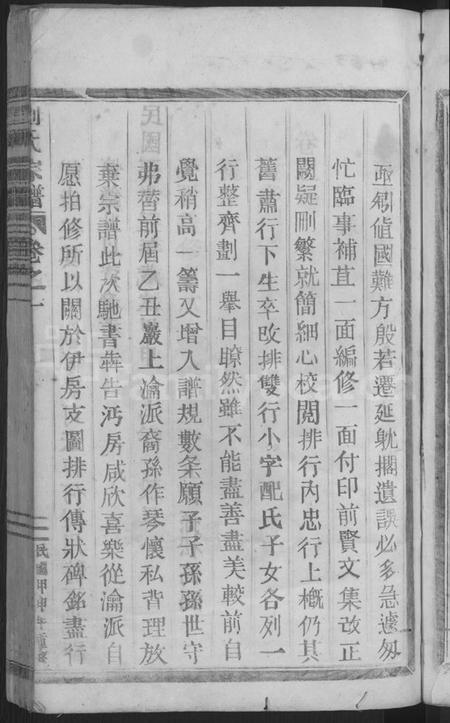 亟矧值國難方殷若遷延躭擱遺誤必多急遽匆
忙臨事補苴一面編修一面付印前賢文集改正
闕疑刪繁就簡細心校閱排行內忠行上概仍其
舊肅行下生卒改排雙行小字配氏子女各列一
行整齊劃一舉目瞭然雖不能盡善盡美較前自
覺稍高一籌又增入譜規數条願子子孫孫世守
弗替前屆乙丑巖上瀹派裔孫作琴懷私背理放
棄宗譜此次馳書犇告沔房咸欣喜樂從瀹派自
愿拍修所以關於伊房支圖排行傳狀碑銘盡行
劉氏宗譜 卷之一
民國甲申年重修